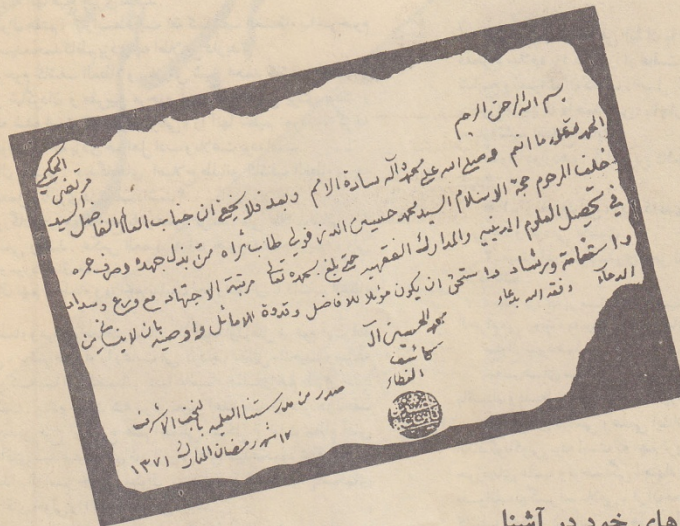 بسم الله الرحمن الرحيم
الحمد لله على ما انعم وصلى الله على محمد وآله سادة الامم وبعد فلا يخفى ان جناب العالم الفاضل السيد مرتضى الحكمي
خلف المرحوم حجة الاسلام السيد محمد حسين الدزفولي طاب ثراه ممن بذل جهده وصرف عمره
في تحصيل العلوم الدينيه والمدارك الفقهيه حتى بلغ بحمده تعالى مرتبة الاجتهاد مع ورع وسداد
واستقامة ورشاد واستحق ان يكون موئلا للافاضل وقدوة الاماثل واوصيه بان لا ينساني من
الدعاء وفقه الله بدعاء
محمد الحسين آل
كاشف
الغطاء
صدر من مدرستنا العلميه بالنجف الاشرف
١٢ شهر رمضان المبارك ١٣٧١
های خود در آشنا